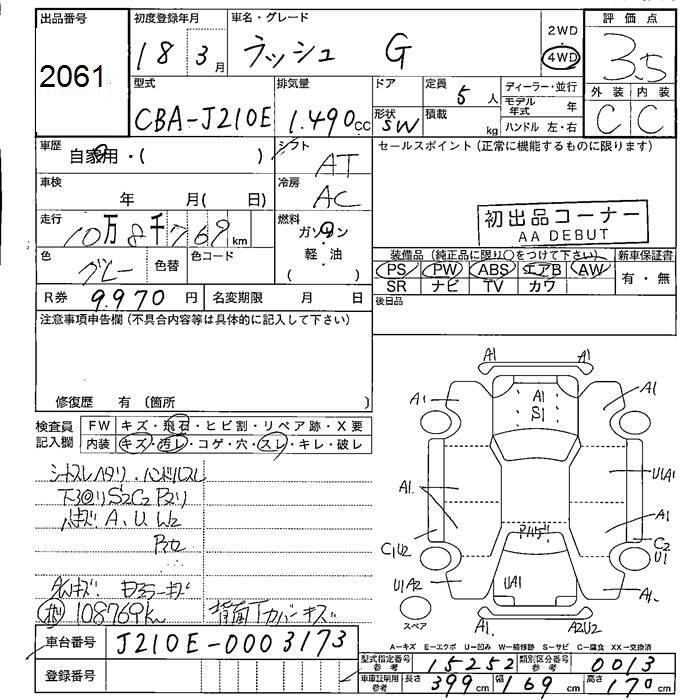 出品番号
2061
初度登録年月
18 3 月
車名・グレード
ラッシュ G
2WD
4WD
評価点
3.5
外装 内装
C C
型式
CBA-J210E
排気量
1.490 cc
ドア
形状
SW
定員
5 人
積載
kg
ディーラー・並行
モデル年式 年
ハンドル 左・右
車歴
自家用・( )
シフト
AT
車検
年 月( 日)
冷房
AC
走行
10万8千769 km
燃料
ガソリン
軽油
( )
色
グレー
色替
色コード
R券 9.970 円
名変期限 月 日
セールスポイント (正常に機能するものに限ります)
初出品コーナー
AA DEBUT
装備品 (純正品に限り○をつけて下さい)
新車保証書
PS PW ABS エアB AW
SR ナビ TV カワ
有・無
後日品
注意事項申告欄 (不具合内容等は具体的に記入して下さい)
修復歴 有 (箇所 )
検査員記入欄
FW キズ・飛石・ヒビ割・リペア跡・X要
内装 キズ・汚レ・コゲ・穴・スレ・キレ・破レ
シートスレヘタリ・ハンドルスレ
S2C2
A、U、W2
108769km
背面Tカバーキズ
A1 A1
A1 A1
A1
S1
A1. U1A1
A1
C1U2 C2
U1
U1A2 UA1 A1.
スペア
A1. A2U2
A-キズ E-エクボ U-凹み W-補修跡 S-サビ C-腐食 XX-交換済
車台番号 J210E-0003173
登録番号
型式指定番号 参考 15252
類別区分番号 参考 0013
車庫証明用 参考 長さ 399 cm 幅 169 cm 高さ 170 cm